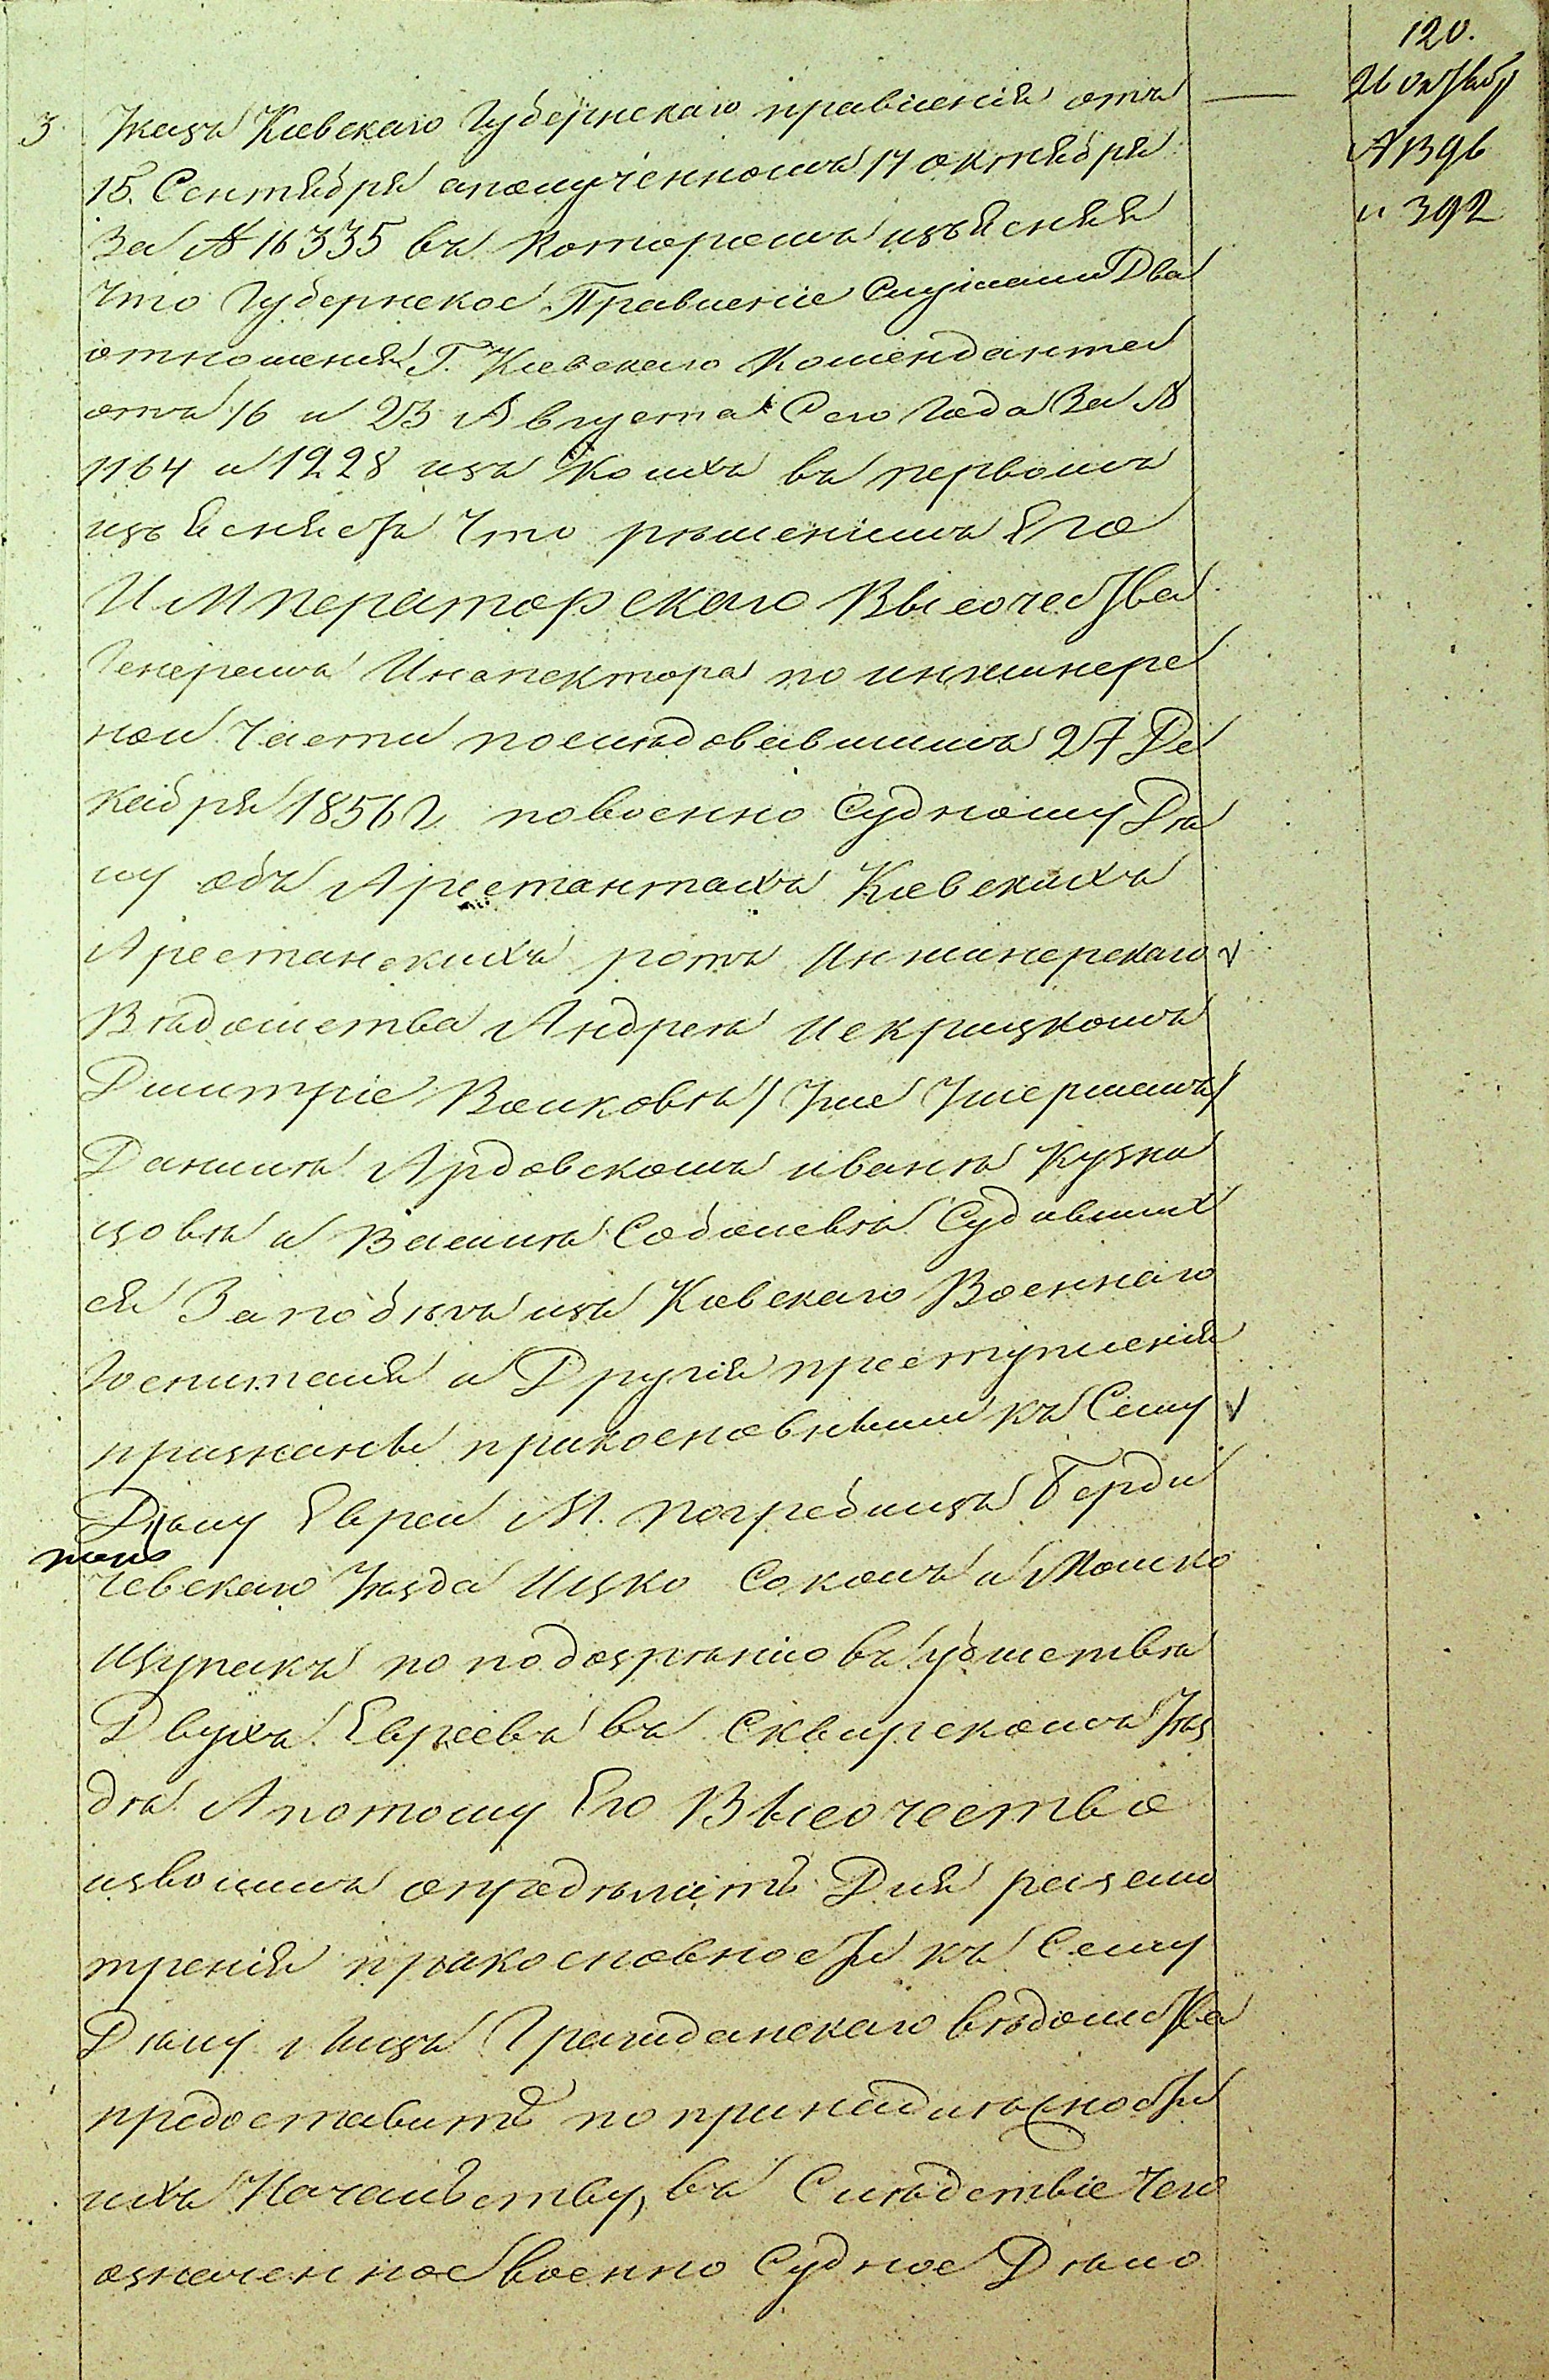 120.
26 октябр
№ 1396
и 392
3. Указъ Кіевскаго Губернскаго правленія отъ
15. Сентября а полученномъ 17 октября
за № 16335 въ которомъ изъясняя
что Губернское Правленіе Слушали Два
отношенія Г. Кіевскаго Коменданта
отъ 16 и 23 Августа Сего года за №
1164 и 1228 изъ коихъ въ первомъ
изъясняетъ что ръшеніимъ Его
Императорскаго Высочества
Генералъ Инспектора по инжинере
ной Части последовавшимъ 27 Де
кабря 1856 г. по военно Судному Дѣ
лу объ Арестантахъ Кіевскихъ
Арестанскихъ ротъ Инжинерскаго
Вѣдомства Андреѣ Некрицкомъ
Дмитріе Волковѣ / уже умершемъ /
Данилѣ Ардовскомъ иванѣ Кузне
цовѣ и Василѣ Соболевѣ Судивших
ся За побѣгъ изъ Кіевскаго Военнаго
Госпиталя и Другія преступленія
признаны прикосновными къ Сему
Дѣлу Евреи М. Погребищъ Берди
чевскаго Уѣзда Ицко Соколъ и Мошко
Щупакъ по подозрѣнію въ убитствѣ
Двухъ Евреевъ въ Сквирскомъ Уѣз
дѣ А потому Его Высочество
изволилъ опредѣлить Для разсмо
тренія прикосновности къ Сему
Дѣлу лицъ Гражданскаго вѣдомства
предоставить по принадлежности
ихъ Начальству, въ Слѣдствіе чего
означенное военно Судное Дѣло